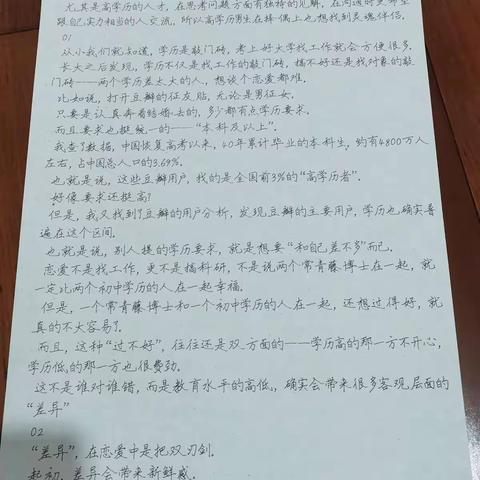 尤其是高学历的人才，在思考问题方面有独特的见解，在沟通时更希望
跟自己实力相当的人交流，所以高学历男生在择偶上也想找到灵魂伴侣。
01
从小我们就知道，学历是敲门砖，考上好大学找工作就会方便很多.
长大之后发现，学历不仅是找工作的敲门砖，搞不好还是找对象的敲
门砖——两个学历差太大的人，想谈个恋爱都难.
比如说，打开豆瓣的征友贴，无论是男征女.
只要是认真奔着结婚去的，多少都有点学历要求.
而且要求也挺统一的——“本科及以上”.
我查了数据，中国恢复高考以来，40年累计毕业的本科生，约有4800万人
左右，占中国总人口的3.69%.
也就是说，这些豆瓣用户，找的是全国前3%的“高学历者”.
好像要求还挺高?
但是，我又找到了豆瓣的用户分析，发现豆瓣的主要用户，学历也确实普
遍在这个区间.
也就是说，别人提的学历要求，就是想要“和自己差不多”而已.
恋爱不是找工作，更不是搞科研，不是说两个常青藤博士在一起，就
一定比两个初中学历的人在一起幸福.
但是，一个常青藤博士和一个初中学历的人在一起，还想过得好，就
真的不大容易了.
而且，这种“过不好”，往往还是双方面的——学历高的那一方不开心，
学历低的那一方也很费劲.
这不是谁对谁错，而是教育水平的高低,，确实会带来很多客观层面的
“差异”
02
“差异”，在恋爱中是把双刃剑.
起初，差异会带来新鲜感.